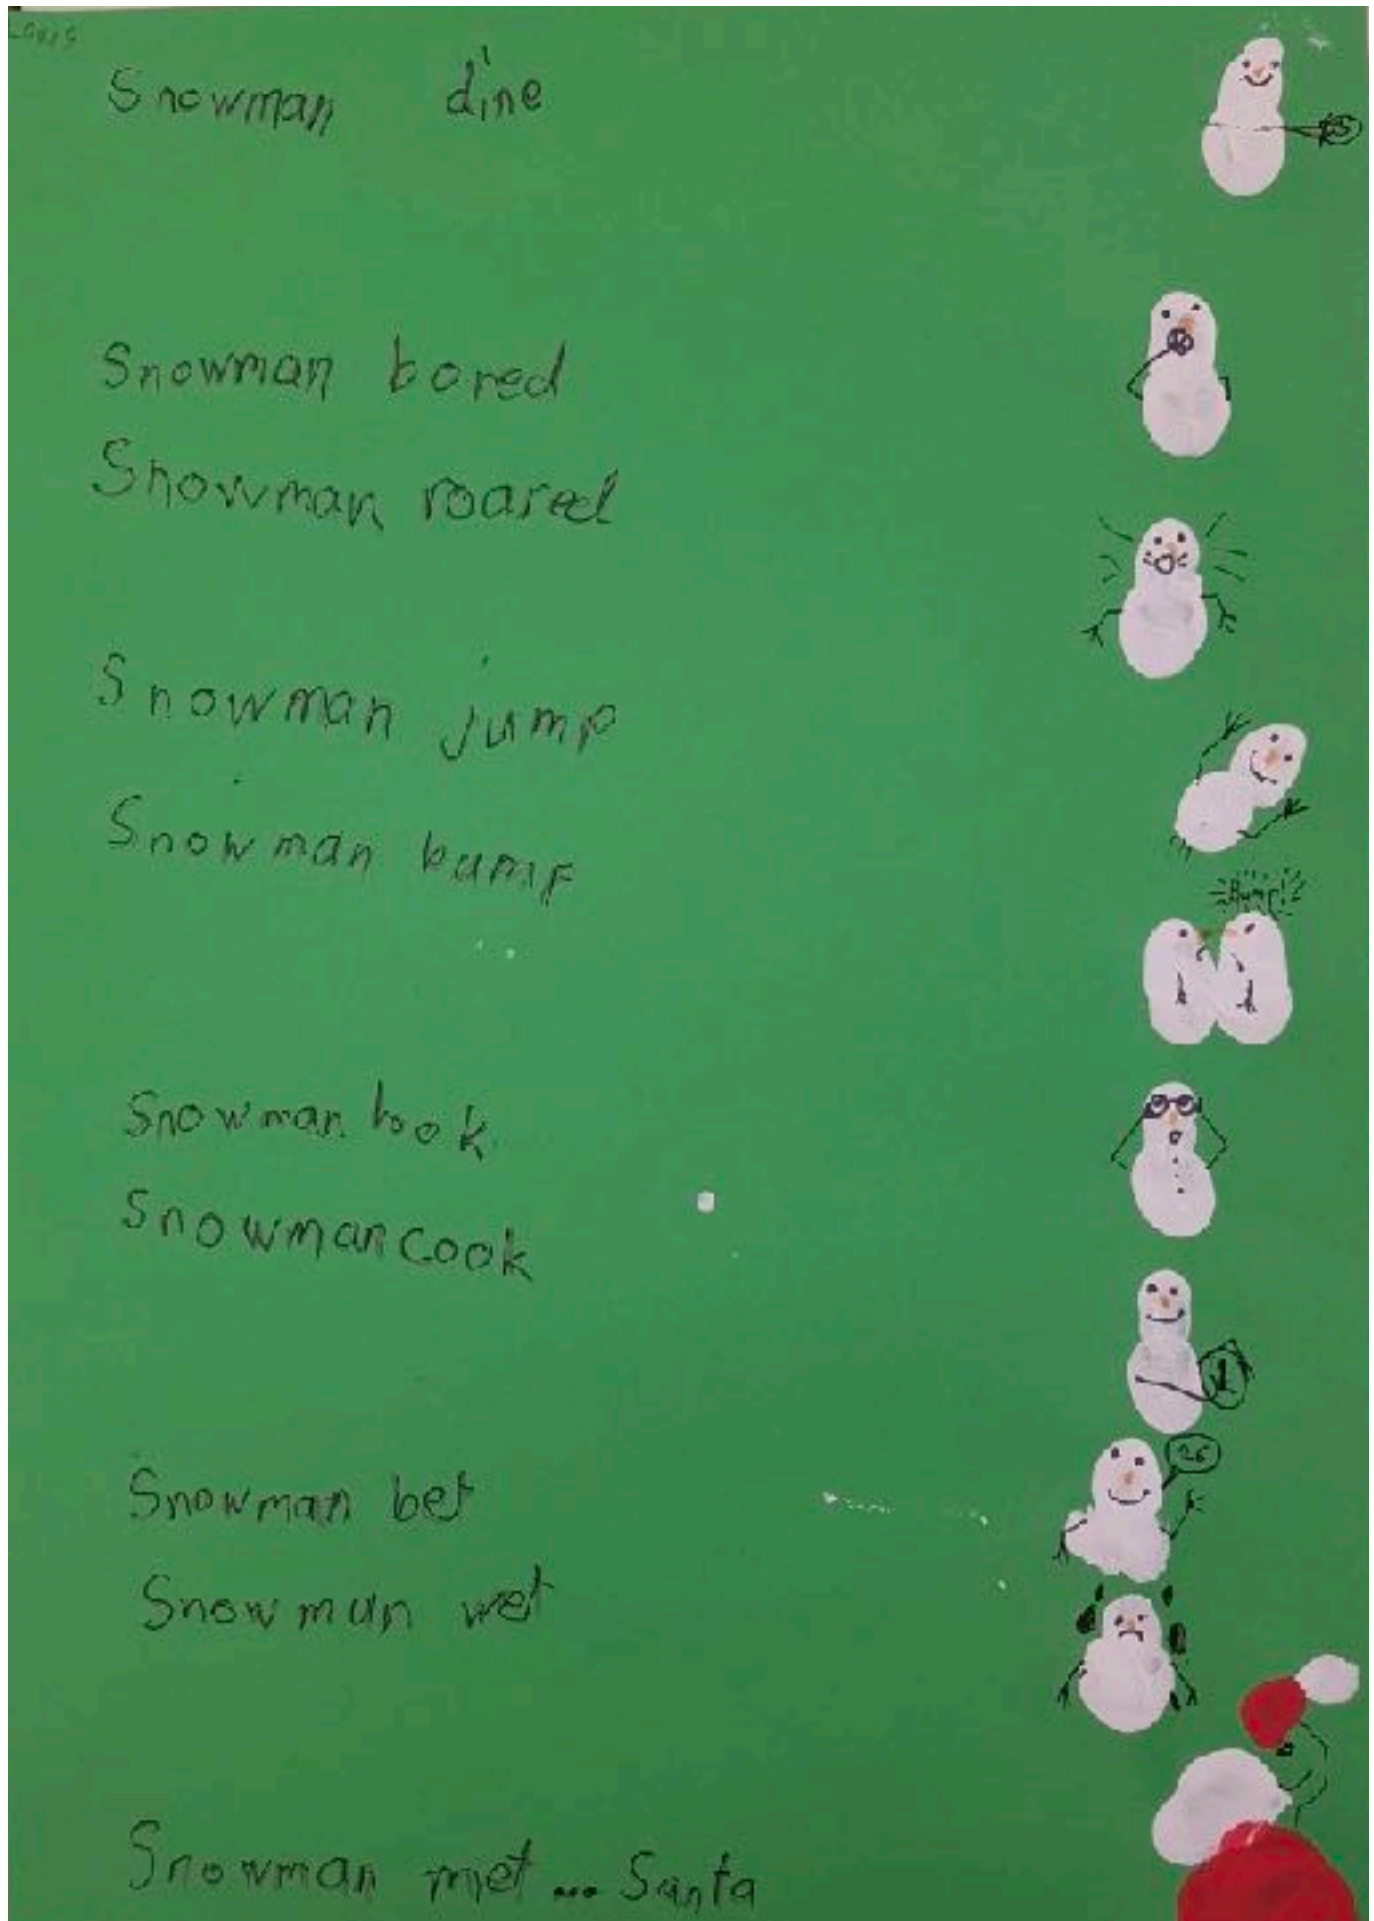 Louis
Snowman dine
Snowman bored
Snowman roared
Snowman jump
Snowman bump
Bump!
Snowman look
Snowman cook
26
Snowman bet
Snowman wet
Snowman met... Santa